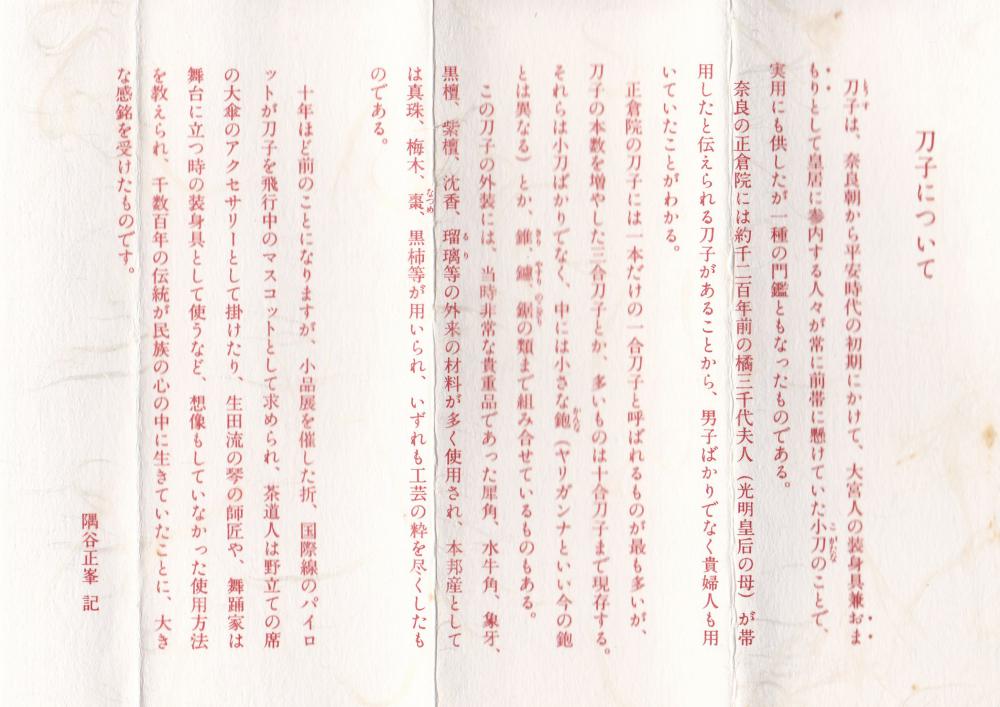 刀子について
刀子は、奈良朝から平安時代の初期にかけて、大宮人の装身具兼おま
もりとして皇居に参内する人々が常に前帯に懸けていた小刀のことで、
実用にも供したが一種の門鑑ともなったものである。
奈良の正倉院には約千二百年前の橘三千代夫人（光明皇后の母）が帯
用したと伝えられる刀子があることから、男子ばかりでなく貴婦人も用
いていたことがわかる。
正倉院の刀子には一本だけの一合刀子と呼ばれるものが最も多いが、
刀子の本数を増やした三合刀子とか、多いものは十合刀子まで現存する。
それらは小刀ばかりでなく、中には小さな鉋（ヤリガンナといい今の鉋
とは異なる）とか、錐、鑢、鋸の類まで組み合せているものもある。
この刀子の外装には、当時非常な貴重品であった犀角、水牛角、象牙、
黒檀、紫檀、沈香、瑠璃等の外来の材料が多く使用され、本邦産として
は真珠、梅木、棗、黒柿等が用いられ、いずれも工芸の粋を尽くしたも
のである。
十年ほど前のことになりますが、小品展を催した折、国際線のパイロ
ットが刀子を飛行中のマスコットとして求められ、茶道人は野立ての席
の大傘のアクセサリーとして掛けたり、生田流の琴の師匠や、舞踊家は
舞台に立つ時の装身具として使うなど、想像もしていなかった使用方法
を教えられ、千数百年の伝統が民族の心の中に生きていたことに、大き
な感銘を受けたものです。
隅谷正峯 記